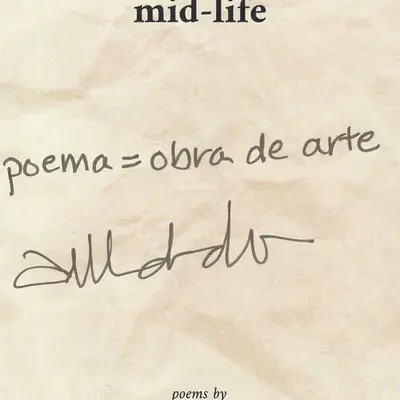 mid-life
poema = obra de arte
poems by